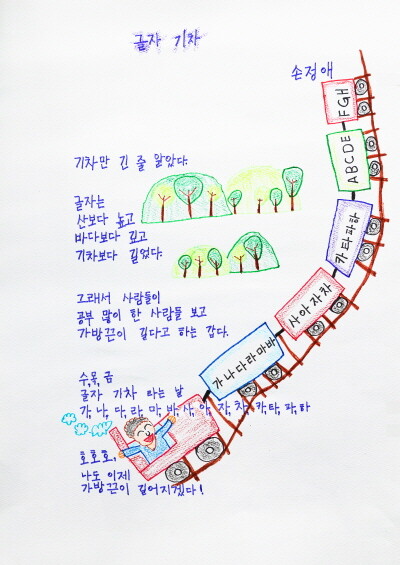 글자 기차
손정애
기차만 긴 줄 알았다.
글자는
산보다 높고
바다보다 깊고
기차보다 길었다.
그래서 사람들이
공부 많이 한 사람들 보고
가방끈이 길다고 하는 갑다.
수,목,금
글자 기차 타는 날
가,나,다,라,마,바,사,아,자,차,카,타,파,하
호호호,
나도 이제
가방끈이 길어지겠다!
가나다라마바
사아자차
카타파하
ABCDE
FGH